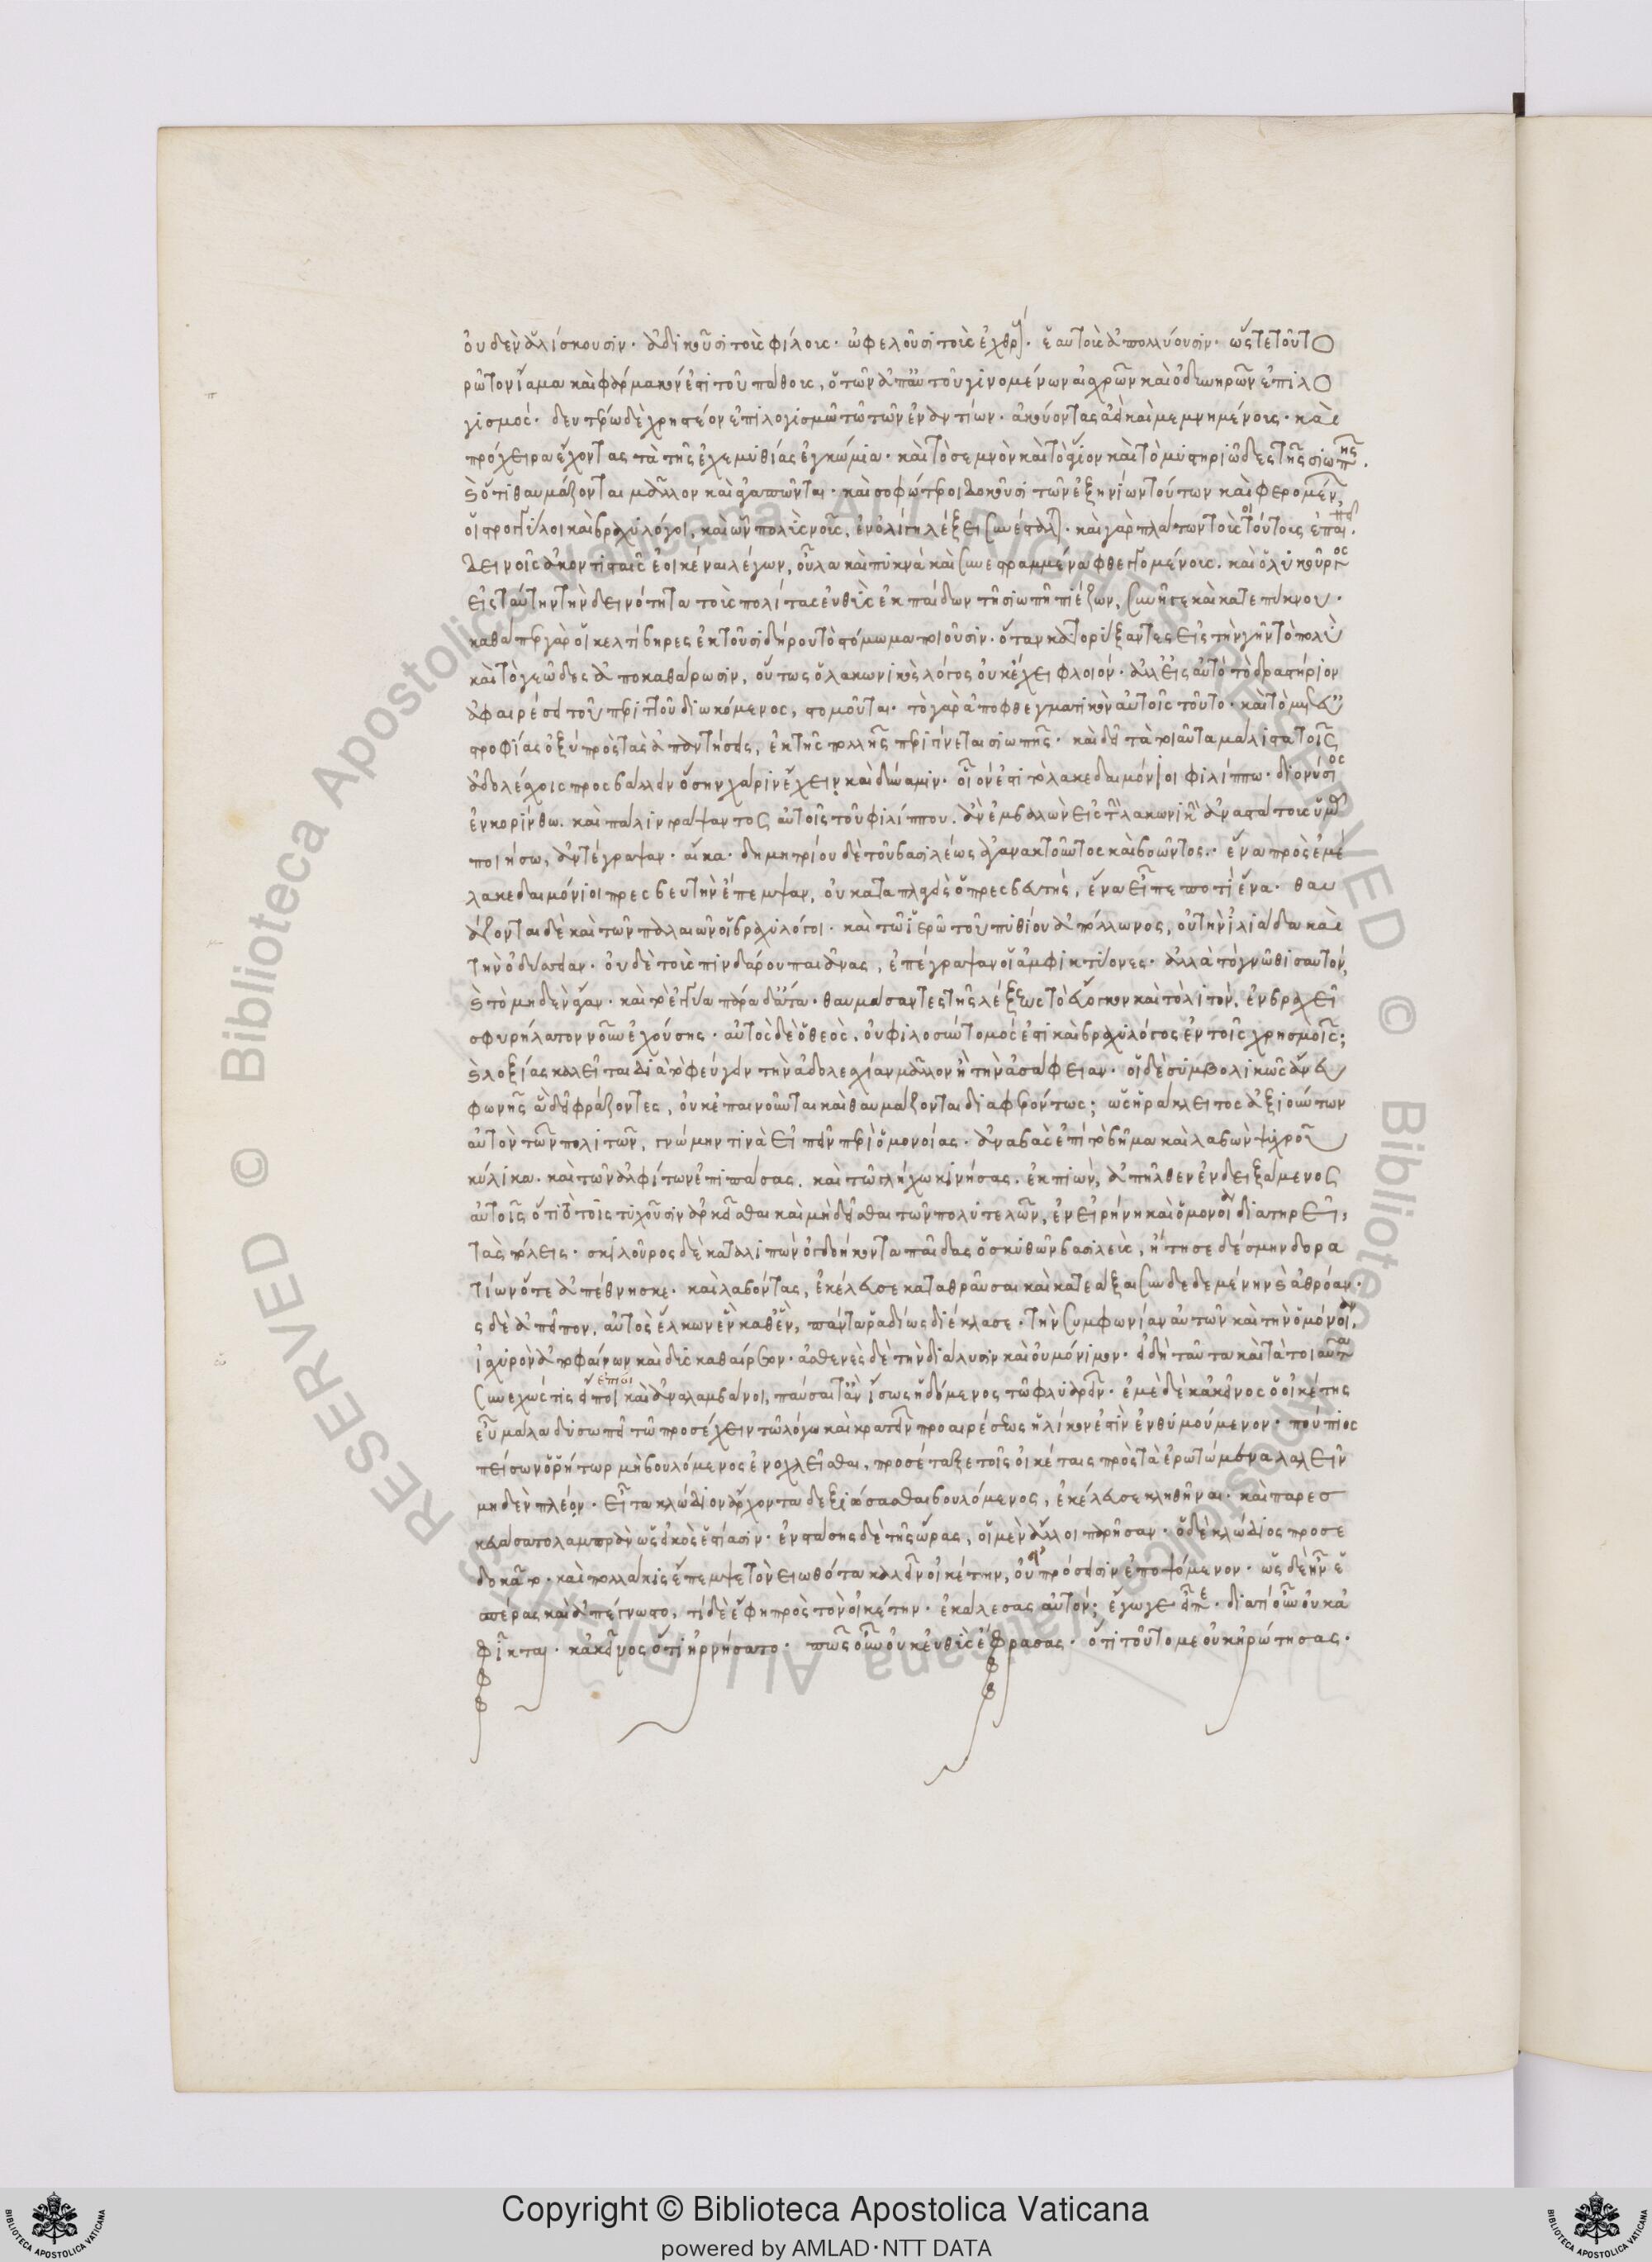 οὐδὲν ἁλίσκουσιν· ἀδικοῦσι τοὺς φίλους· ὠφελοῦσι τοὺς ἐχθρούς· ἑαυτοὺς ἀπολλύουσιν· ὥστε τοῦτο
ρῶτον ἴαμα καὶ φάρμακόν ἐστι τοῦ πάθους, ὁ τῶν ἀπ' αὐτοῦ γινομένων αἰσχρῶν καὶ ὀδυνηρῶν ἐπιλο
γισμός· δευτέρω δὲ χρηστέον ἐπιλογισμῶ τῶ τῶν ἐναντίων· ἀκούοντας ἀεὶ καὶ μεμνημένους· καὶ
πρόχειρα ἔχοντας τὰ τῆς ἐχεμυθίας ἐγκώμια· καὶ τὸ σεμνὸν καὶ τὸ ἅγιον καὶ τὸ μυστηριῶδες τῆς σιωπῆς.
καὶ ὅτι θαυμάζονται μᾶλλον καὶ ἀγαπῶνται· καὶ σοφώτεροι δοκοῦσι τῶν ἐξηνίων τούτων καὶ φερομένων,
οἱ στρογγύλοι καὶ βραχυλόγοι, καὶ ὧν πολὺς νοῦς, ἐν ὀλίγη λέξει συνέσταλται. καὶ γὰρ πλάτων τοὺς τοιούτους ἐπαινεῖ.
δεινοῖς ἀκοντισταῖς ἐοικέναι λέγων, οὖλα καὶ πυκνὰ καὶ συνεστραμμένα φθεγγομένους. καὶ ὁ λυκοῦργος
εἰς ταύτην τὴν δεινότητα τοὺς πολίτας εὐθὺς ἐκ παίδων τῆ σιωπῆ πιέζων, συνῆγε καὶ κατεπύκνου·
καθάπερ γὰρ οἱ κελτίβηρες ἐκ τοῦ σιδήρου τὸ στόμωμα ποιοῦσιν· ὅταν κατορύξαντες εἰς τὴν γῆν τὸ πολὺ
καὶ τὸ γεῶδες ἀποκαθάρωσιν, οὕτως ὁ λακωνικὸς λόγος οὐκ ἔχει φλοιόν· ἀλλ' εἰς αὐτὸ τὸ δραστήριον
ἀφαιρέσει τοῦ περιττοῦ διωκόμενος, στομοῦται· τὸ γὰρ ἀποφθεγματικὸν αὐτοῖς τοῦτο· καὶ τὸ μετ' εὐ
στροφίας ὀξὺ πρὸς τὰς ἀπαντήσεις, ἐκ τῆς πολλῆς περιγίνεται σιωπῆς· καὶ δεῖ τὰ τοιαῦτα μάλιστα τοῖς
ἀδολέσχοις προσβάλλειν ὅσην χάριν ἔχειν καὶ δύναμιν· οἷόν ἐστι τὸ λακεδαιμόνιοι φιλίππω· διονύσιος
ἐν κορίνθω. καὶ πάλιν γράψαντος αὐτοῖς τοῦ φιλίππου. ἂν ἐμβάλλων εἰς τὴν λακωνικὴν ἀναστάτους ὑμᾶς
ποιήσω, ἀντέγραψαν· αἴκα· δημητρίου δὲ τοῦ βασιλέως ἀγανακτοῦντος καὶ βοῶντος· ἕνα πρὸς ἐμὲ
λακεδαιμόνιοι πρεσβευτὴν ἔπεμψαν, οὐ καταπλαγεὶς ὁ πρεσβευτής, ἕνα εἶπε ποτὶ ἕνα· θαυ
άζονται δὲ καὶ τῶν παλαιῶν οἱ βραχυλόγοι· καὶ τῶ ἱερῶ τοῦ πυθίου ἀπόλλωνος, οὐ τὴν ἰλιάδα καὶ
τὴν ὀδύσσειαν· οὐδὲ τοὺς πινδάρου παιᾶνας, ἐπέγραψαν οἱ ἀμφικτύονες· ἀλλὰ τὸ γνῶθι σαυτόν,
καὶ τὸ μηδὲν ἄγαν· καὶ τὸ ἐγγύα πάρα δ' ἄτα· θαυμάσαντες τῆς λέξεως τὸ εὔογκον καὶ τὸ λιτόν, ἐν βραχεῖ
σφυρήλατον νοῦν ἐχούσης· αὐτὸς δὲ ὁ θεὸς, οὐ φιλοσύντομός ἐστι καὶ βραχυλόγος ἐν τοῖς χρησμοῖς;
καὶ λοξίας καλεῖται διὰ τὸ φεύγειν τὴν ἀδολεσχίαν μᾶλλον ἢ τὴν ἀσάφειαν· οἱ δὲ συμβολικῶς ἄνευ
φωνῆς ἃ δεῖ φράζοντες, οὐκ ἐπαινοῦνται καὶ θαυμάζονται διαφερόντως; ὡς ἡράκλειτος ἀξιούντων
αὐτὸν τῶν πολιτῶν, γνώμην τινὰ εἰπεῖν περὶ ὁμονοίας· ἀναβὰς ἐπὶ τὸ βῆμα καὶ λαβὼν ψυχροῦ
κύλικα· καὶ τῶν ἀλφίτων ἐπιπάσας. καὶ τῶ γλήχωνι κινήσας. ἐκπιών, ἀπῆλθεν ἐνδειξάμενος
αὐτοῖς ὅτι τὸ τοῖς τυχοῦσιν ἀρκεῖσθαι καὶ μὴ δεῖσθαι τῶν πολυτελῶν, ἐν εἰρήνη καὶ ὁμονοία διατηρεῖ,
τὰς πόλεις· σκίλουρος δὲ καταλιπὼν ὀγδοήκοντα παῖδας ὁ σκυθῶν βασιλεὺς, ἤτησε δέσμην δορα
τίων ὅτε ἀπέθνησκε· καὶ λαβόντας, ἐκέλευσε καταθραῦσαι καὶ κατεάξαι συνδεδεμένην καὶ ἀθρόαν·
ς δὲ ἀπεῖπον, αὐτὸς ἕλκων ἓν καθ' ἓν, πάντα ῥαδίως διέκλασε· τὴν συμφωνίαν αὐτῶν καὶ τὴν ὁμόνοιαν,
ἰσχυρὸν ἀποφαίνων καὶ δυσκαθαίρετον· ἀσθενὲς δὲ τὴν διάλυσιν καὶ οὐ μόνιμον· εἰ δὴ ταῦτα καὶ τὰ τοιαῦτα
συνεχῶς τις εἴποι καὶ ἀναλαμβάνοι, παύσαιτ' ἂν ἴσως ἡδόμενος τῶ φλυαρεῖν· ἐμὲ δὲ κἀκεῖνος ὁ οἰκέτης
εὖ μάλα δυσωπεῖ τῶ προσέχειν τῶ λόγω καὶ κρατεῖν προαιρέσεως ἡλίκον ἐστὶν ἐνθυμούμενον· πούπιος
πείσων ὁ ῥήτωρ μὴ βουλόμενος ἐνοχλεῖσθαι, προσέταξε τοῖς οἰκέταις πρὸς τὰ ἐρωτώμενα λαλεῖν
μηδὲν πλέον· εἶτα κλώδιον ἄρχοντα δεξιώσασθαι βουλόμενος, ἐκέλευσε κληθῆναι· καὶ παρεσ
κευάσατο λαμπρὰν ὡς εἰκὸς ἑστίασιν· ἐνστάσης δὲ τῆς ὥρας, οἱ μὲν ἄλλοι παρῆσαν· ὁ δὲ κλώδιος προσε
δοκᾶτο· καὶ πολλάκις ἔπεμψε τὸν εἰωθότα καλεῖν οἰκέτην, εἰ πρόσεισιν ἐποψόμενον· ὡς δὲ ἦν ἑ
σπέρας καὶ ἀπέγνωστο, τί δὲ ἔφη πρὸς τὸν οἰκέτην· ἐκάλεσας αὐτόν; ἔγωγε εἶπε· διατί οὖν οὐκ ἀ
φῖκται· κἀκεῖνος ὅτι ἠρνήσατο· πῶς οὖν οὐκ εὐθὺς ἔφρασας· ὅτι τοῦτό με οὐκ ἠρώτησας·
Copyright © Biblioteca Apostolica Vaticana
powered by AMLAD·NTT DATA